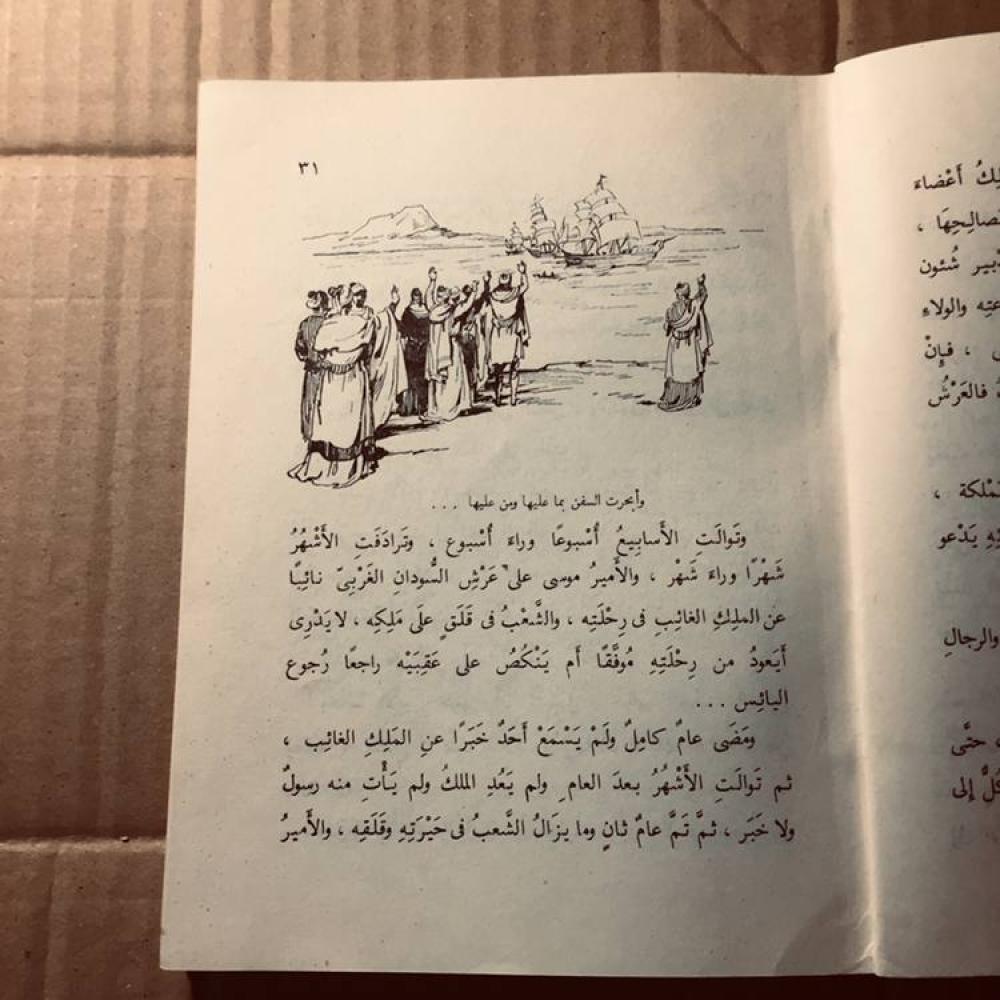 ٣١
وأبحرت السفن بما عليها ومن عليها ...
وتَوالَتِ الأَسابِيعُ أُسْبوعًا وراءَ أُسْبوع ، وتَرادَفَتِ الأَشْهُرُ
شَهْرًا وراءَ شَهْر ، والأَميرُ موسى على عَرْشِ السُّودانِ الغَرْبىّ نائِبًا
عن الملِكِ الغائِبِ فى رِحْلَتِه ، والشَّعْبُ فى قَلَقٍ علَى مَلِكِه ، لا يَدْرِى
أَيَعودُ من رِحْلَتِهِ مُوفَّقًا أَم يَنْكُصُ على عَقِبَيْه راجعًا رُجوع
اليائِس ...
ومَضَى عامٌ كامِلٌ ولَمْ يَسْمَعْ أَحَدٌ خَبَرًا عنِ المَلِكِ الغائِب ،
ثم تَوالَتِ الأَشْهُرُ بعدَ العامِ ولم يَعُدِ الملكُ ولم يَأْتِ منه رسولٌ
ولا خَبَر ، ثمَّ تَمَّ عامٌ ثانٍ وما يزَالُ الشَّعبُ فى حَيْرَتِهِ وقَلَقِه ، والأَميرُ
أَعْضاءَ
شُئون
والولاءِ
، فإِنْ
فالعَرْشُ
،
يَدْعو
والرجالِ
، حتَّى
إلى